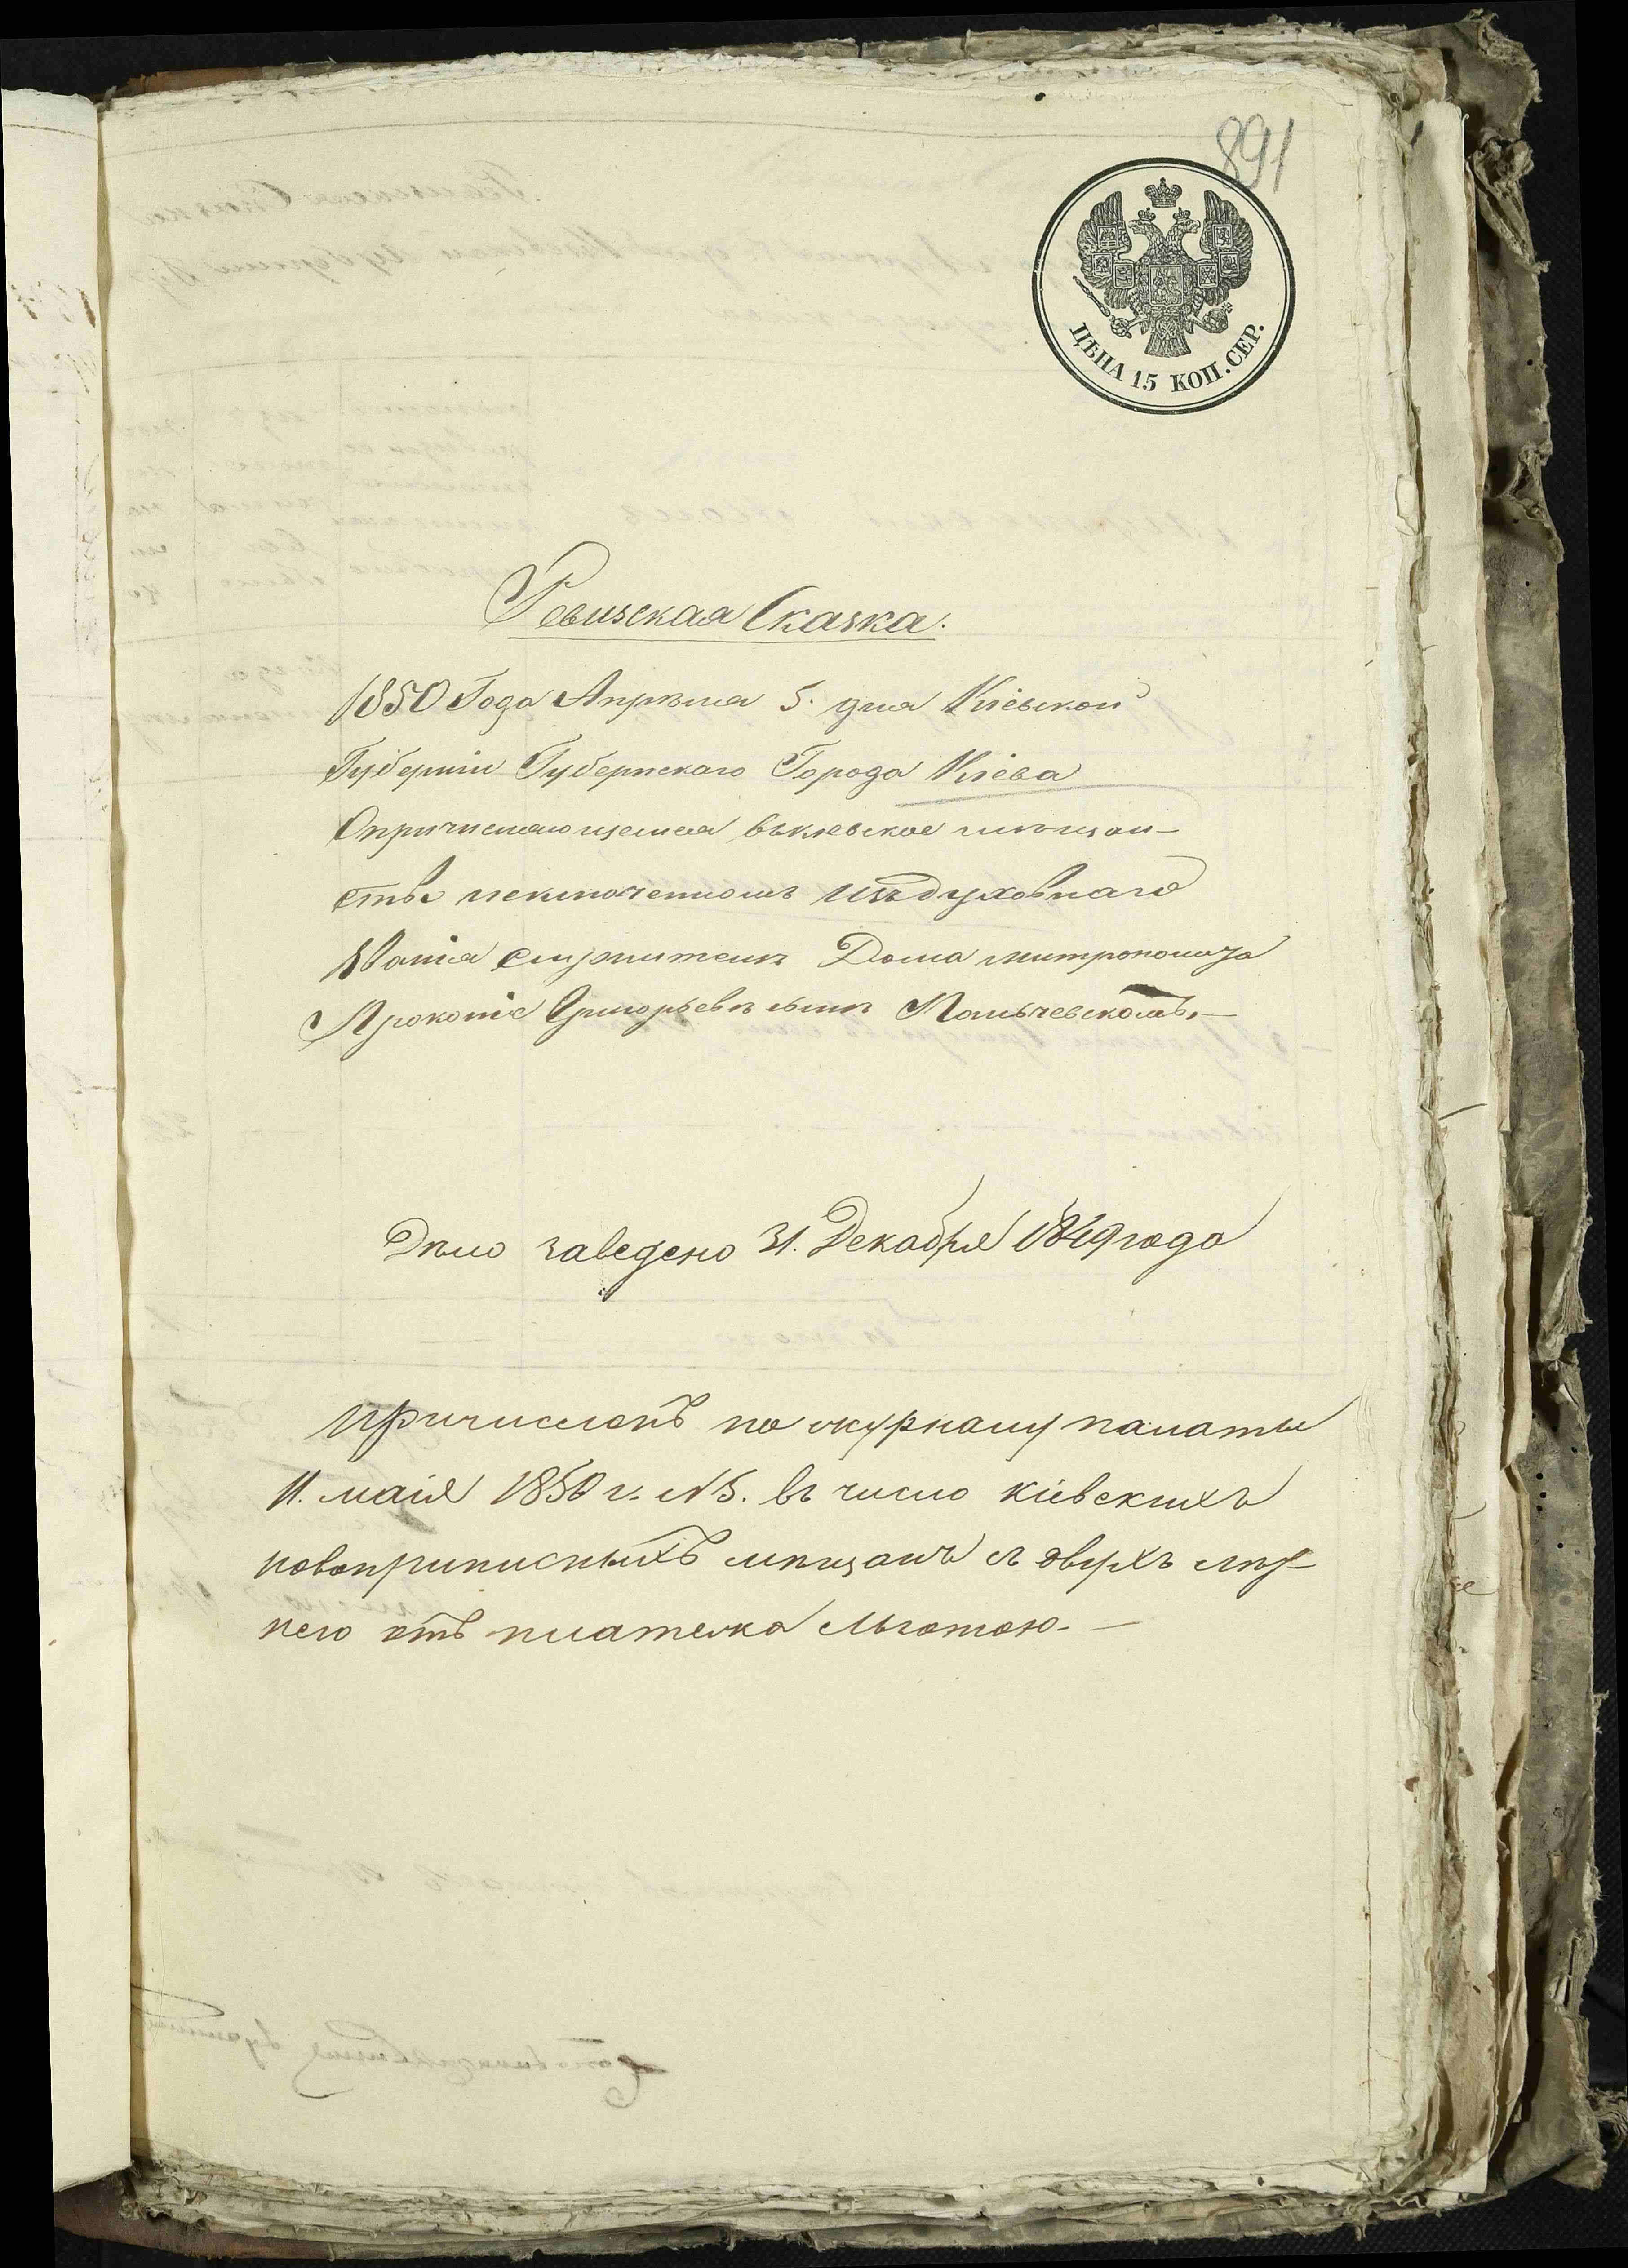 891
ЦѢНА 15 КОП. СЕР.
Ревизская Сказка.
1850 Года Апрѣля 5. дня Кіевской
Губерніи Губернскаго Города Кіева
О причисляющемся въ кіевское мѣщан-
ство исключенномъ изъ духовнаго
званія служителѣ Дома митрополита
Прокопіѣ Григорьевѣ сынѣ
Дѣло заведено 31. Декабря 1849 года
Причисленъ по журналу палаты
11. маія 1850 г. №5. въ число кіевскихъ
новоприписныхъ мѣщанъ съ
него отъ платежа льготою. —